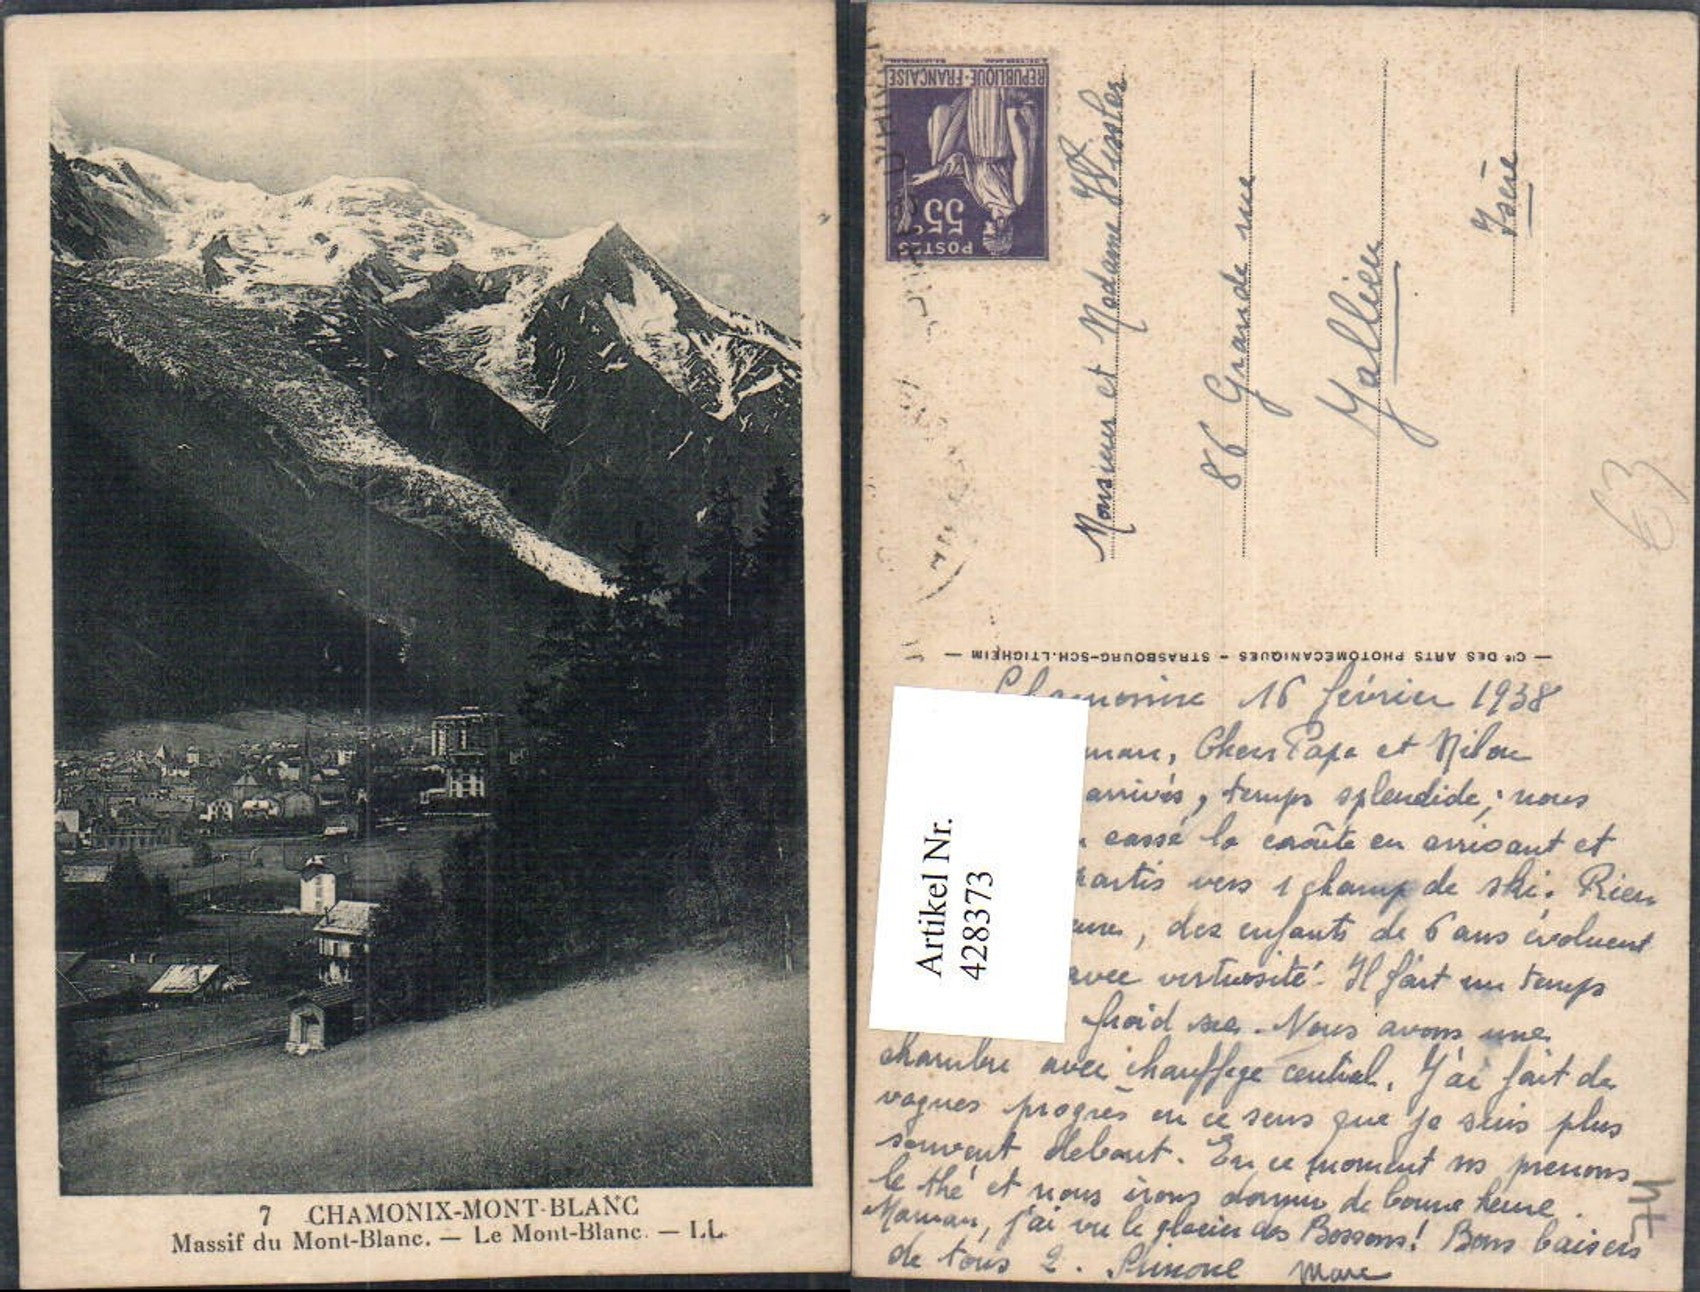 7 CHAMONIX-MONT-BLANC
Massif du Mont-Blanc. — Le Mont-Blanc. — LL
REPUBLIQUE-FRANÇAISE
55c
POSTES
Monsieur et Madame Wissler
86 Grande rue
Jallieu
Isère
€3
— Cie DES ARTS PHOTOMECANIQUES - STRASBOURG-SCH.LTIGHEIM —
Artikel Nr.
428373
16 février 1938
Chers Papa et Milou
arrivés, temps splendide; nous
cassé la croûte en arrivant et
partis vers 1 champ de ski. Rien
, des enfants de 6 ans évoluent
avec virtuosité. Il fait un temps
froid sec. Nous avons une
chambre avec chauffage central. J'ai fait de
vagues progrès en ce sens que je suis plus
souvent debout. En ce moment ns prenons
le thé et nous irons dormir de bonne heure.
Maman, j'ai vu le glacier des Bossons! Bons baisers
de tous 2. Simone Marc